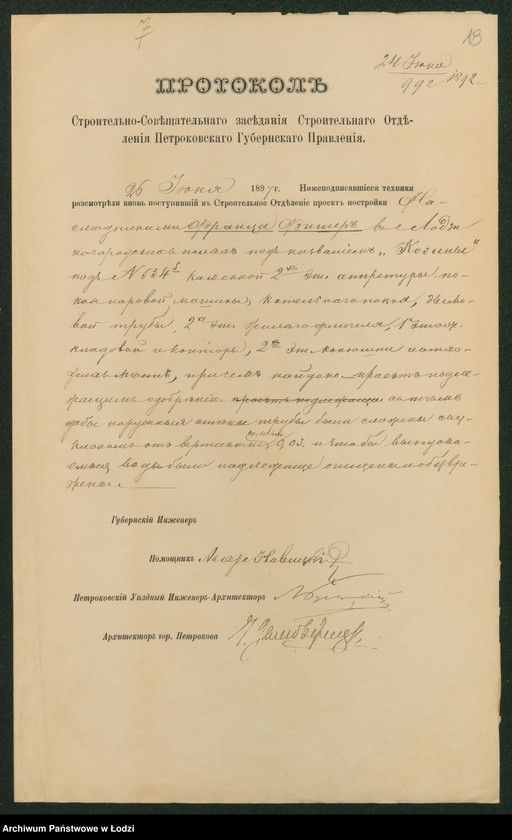 7
18
24 Июня
992 1892
ПРОТОКОЛЪ
Строительно-Совѣщательнаго засѣданія Строительнаго Отдѣ-
ленія Петроковскаго Губернскаго Правленія.
25 Июня 1897 г. Нижеподписавшіеся техники
разсмотрѣли вновь поступившій въ Строительное Отдѣленіе проектъ постройки На-
слѣдниками Франца Фишеръ въ г. Лодзи
подъ названіемъ „Козины"
подъ № 534 каменной 2 эт. аппретуры, по-
коя паровой машины, котельнаго покоя, дымо-
вой трубы, 2 эт. жилаго флигеля, 1 этажн.
кладовой и конторы, 2 эт. конюшни
причемъ найдено проектъ подле-
жащимъ одобренію съ тѣмъ
дабы наружныя стѣны трубы были сложены съ у-
клономъ отъ вертикальн. 0,03. и чтобы выпуска-
емыя воды были надлежаще очищены и обезвре-
жены.
Губернскій Инженеръ
Помощникъ
Петроковскій Уѣздный Инженеръ-Архитекторъ
Архитекторъ гор. Петрокова
Archiwum Państwowe w Łodzi